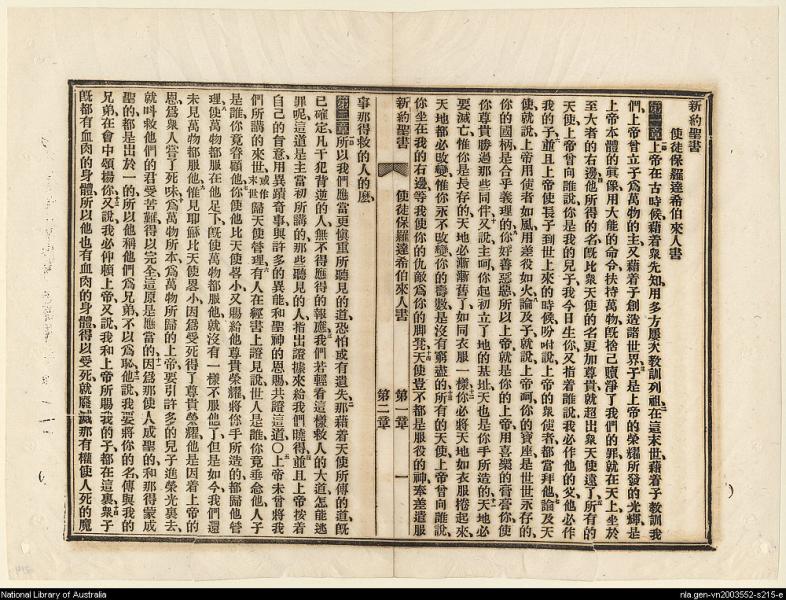 新約聖書
使徒保羅達希伯來人書
第一章上帝在古時候藉着衆先知用多方屢次教訓列祖在這末世藉着子教訓我
們上帝曾立子爲萬物的主又藉着子創造諸世界子是上帝的榮耀所發的光輝是
上帝本體的眞像用大能的命令扶持萬物旣捨己贖淨了我們的罪就在天上坐於
至大者的右邊他所得的名旣比衆天使的名更加尊貴就超出衆天使遠了所有的
天使上帝曾向誰說你是我的兒子我今日生你又指着誰說我必作他的父他必作
我的子並且上帝使長子到世上來的時候吩咐說上帝的衆使者都當拜他論及天
使就說上帝用使者如風用差役如火論及子就說上帝呵你的寶座是世世永存的
你的國柄是合乎義理的你好善惡惡所以上帝就是你的上帝用喜樂的膏膏你使
你尊貴勝過那些同伴又說主呵你起初立了地的基址天也是你手所造的天地必
要滅亡惟你是長存的天地必漸漸舊了如同衣服一樣你必將天地如衣服捲起來
天地都必改變惟你永不改變你的壽數是沒有窮盡的所有的天使上帝曾向誰說
你坐在我的右邊等我使你的仇敵爲你的脚凳天使豈不都是服役的神奉差遣服
新約聖書 使徒保羅達希伯來人書 第一章 第二章 一
事那得救的人的麽
第二章所以我們應當更愼重所聽見的道恐怕或有遺失那藉着天使所傳的道旣
已確定凡干犯背逆的人無不得應得的報應我們若輕看這樣救人的大道怎能逃
罪呢這道是主當初所講的那些聽見的人指出證據來給我們曉得並且上帝按着
自己的旨意用異蹟奇事與許多的異能和聖神的恩賜共證這道〇上帝未曾將我
們所講的來世或作末世歸天使管理有人在經書上證見說世人是誰你竟垂念他人子
是誰你竟眷顧他你使他比天使畧小又賜給他尊貴榮耀將你手所造的都歸他管
理使萬物都服在他足下旣使萬物都服他就沒有一樣不服他了但是如今我們還
未見萬物都服他惟見耶穌比天使畧小因爲受死得了尊貴榮耀他是因着上帝的
恩爲衆人嘗了死味爲萬物所本爲萬物所歸的上帝要引許多的兒子進榮光裏去
就叫救他們的君受苦難得以完全這原是應當的因爲那使人成聖的和那得蒙成
聖的都是出於一的所以他稱他們爲兄弟不以爲恥他說我要將你的名傳與我的
兄弟在會中頌揚你又說我必仰賴上帝又說我和上帝所賜我的子都在這裏衆子
旣都有血肉的身體所以他也有血肉的身體得以受死就廢滅那有權使人死的魔
National Library of Australia
nla.gen-vn2003552-s215-e